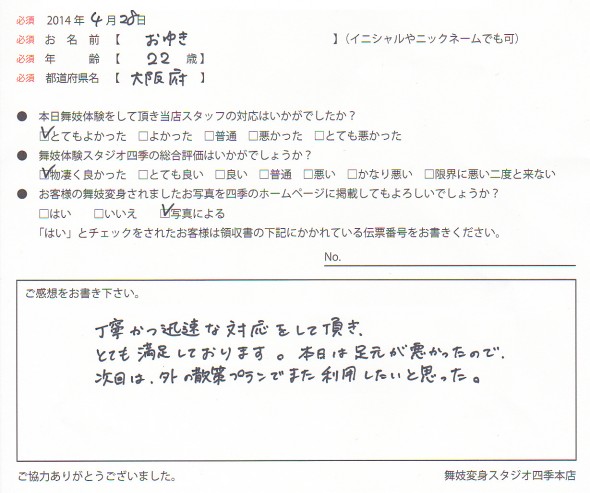 必須 2014年 4月 28日
必須 お名前【 おゆき 】(イニシャルやニックネームでも可)
必須 年齢【 22 歳】
必須 都道府県名【 大阪府 】
● 本日舞妓体験をして頂き当店スタッフの対応はいかがでしたか?
☑とてもよかった □よかった □普通 □悪かった □とても悪かった
● 舞妓体験スタジオ四季の総合評価はいかがでしょうか?
☑物凄く良かった □とても良い □良い □普通 □悪い □かなり悪い □限界に悪い二度と来ない
● お客様の舞妓変身されましたお写真を四季のホームページに掲載してもよろしいでしょうか?
□はい □いいえ ☑写真による
「はい」とチェックをされたお客様は領収書の下記にかかれている伝票番号をお書きください。
No.
ご感想をお書き下さい。
丁寧かつ迅速な対応をして頂き、
とても満足しております。本日は足元が悪かったので、
次回は、外の散策プランでまた利用したいと思った。
ご協力ありがとうございました。
舞妓変身スタジオ四季本店